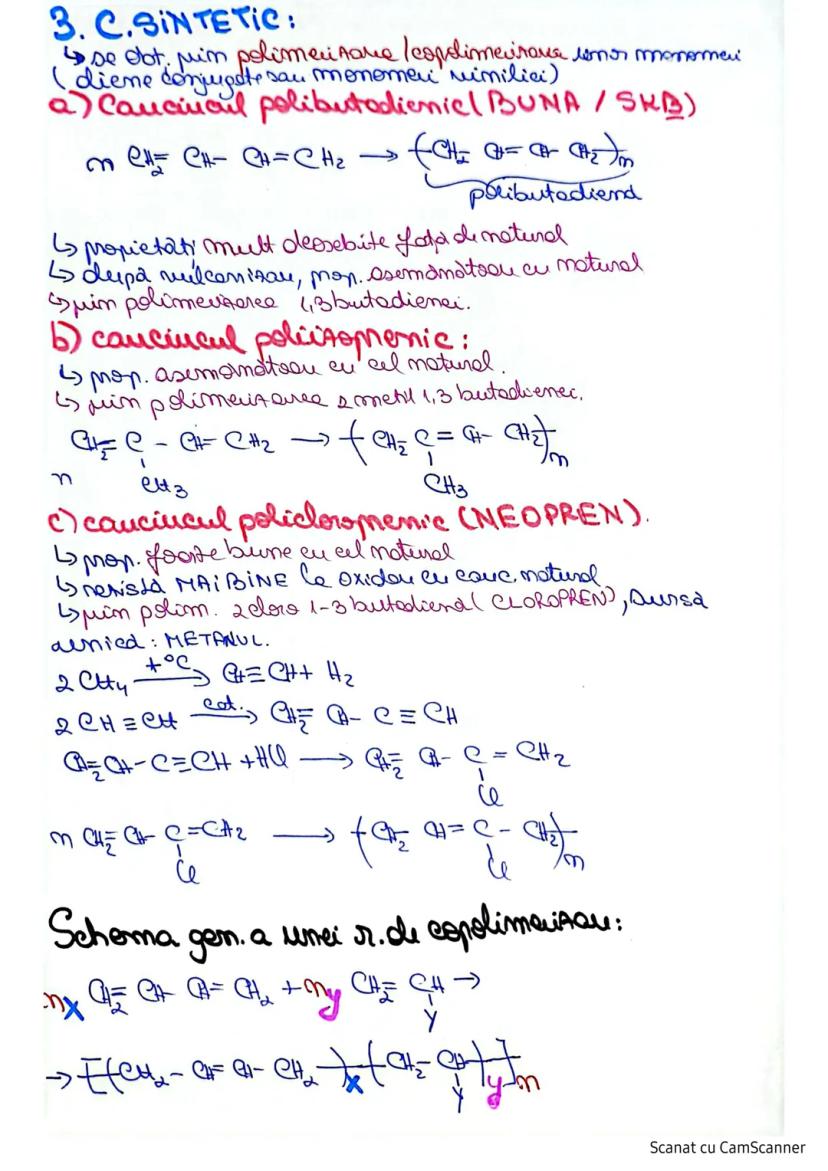 3. C. SINTETIC:
↳ se obt. prin polimerizarea / copolimerizarea unor monomeri
(diene conjugate sau monomeri vinilici)
a) Cauciucul polibutadienic (BUNA / SKB)
n CH₂= CH- CH=CH₂ → -(CH₂- CH= CH- CH₂)-n
polibutadienă
↳ proprietăți mult deosebite față de natural
↳ după vulcanizare, prop. asemănătoare cu natural
↳ prin polimerizarea 1,3 butadienei.
b) cauciucul poliizoprenic:
↳ prop. asemănătoare cu cel natural.
↳ prin polimerizarea 2 metil 1,3 butadienei.
CH₂= C - CH= CH₂ → -( CH₂- C = CH- CH₂)-n
n CH₃ CH₃
c) cauciucul policloroprenic (NEOPREN).
↳ prop. foarte bune cu cel natural
↳ rezistă MAI BINE la oxidare cu cauc. natural
↳ prin polim. 2 cloro 1-3 butadienă (CLOROPREN), sursă
unică: METANUL.
2 CH₄ —t°C→ CH≡CH + H₂
2 CH ≡ CH —cat.→ CH₂= CH- C ≡ CH
CH₂=CH-C≡CH + HCl → CH₂= CH- C = CH₂
Cl
n CH₂= CH- C =CH₂ → -( CH₂- CH= C - CH₂)-n
Cl Cl
Schema gen. a unei r. de copolimerizare:
nx CH₂= CH- CH= CH₂ + ny CH₂= CH →
Y
→ -[-(CH₂ - CH= CH- CH₂)-x-(CH₂- CH)-y]-n
Y
Scanat cu CamScanner